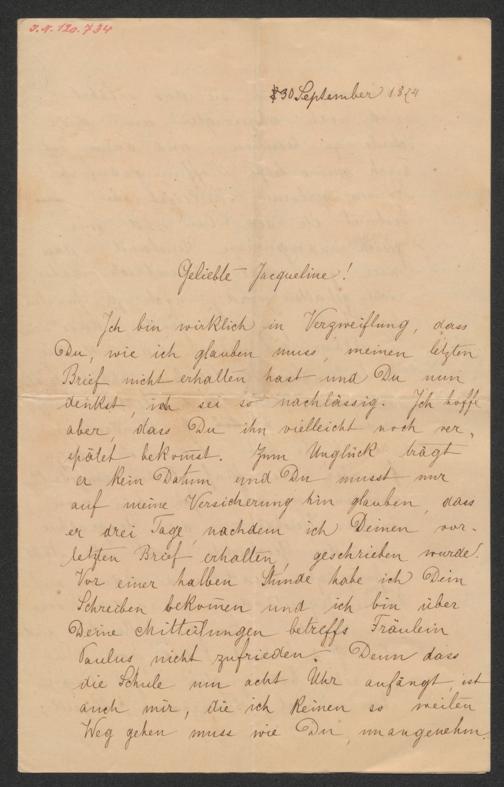 J.N. 120.734
30 September 1874
Geliebte Jacqueline!
Ich bin wirklich in Verzweiflung, dass
Du, wie ich glauben muss, meinen letzten
Brief nicht erhalten hast und Du nun
denkst, ich sei so nachlässig. Ich hoffe
aber, dass Du ihn vielleicht noch ver-
spätet bekom̅st. Zum Unglück trägt
er kein Datum und Du musst nur
auf meine Versicherung hin glauben, dass
er drei Tage, nachdem ich Deinen vor-
letzten Brief erhalten, geschrieben wurde!
Vor einer halben Stunde habe ich Dein
Schreiben bekom̅en und ich bin über
Deine Mitteilungen betreffs Fräulein
Paulus nicht zufrieden. Denn dass
die Schule um acht Uhr anfängt ist
auch mir, die ich keinen so weiten
Weg gehen muss wie Du, unangenehm.